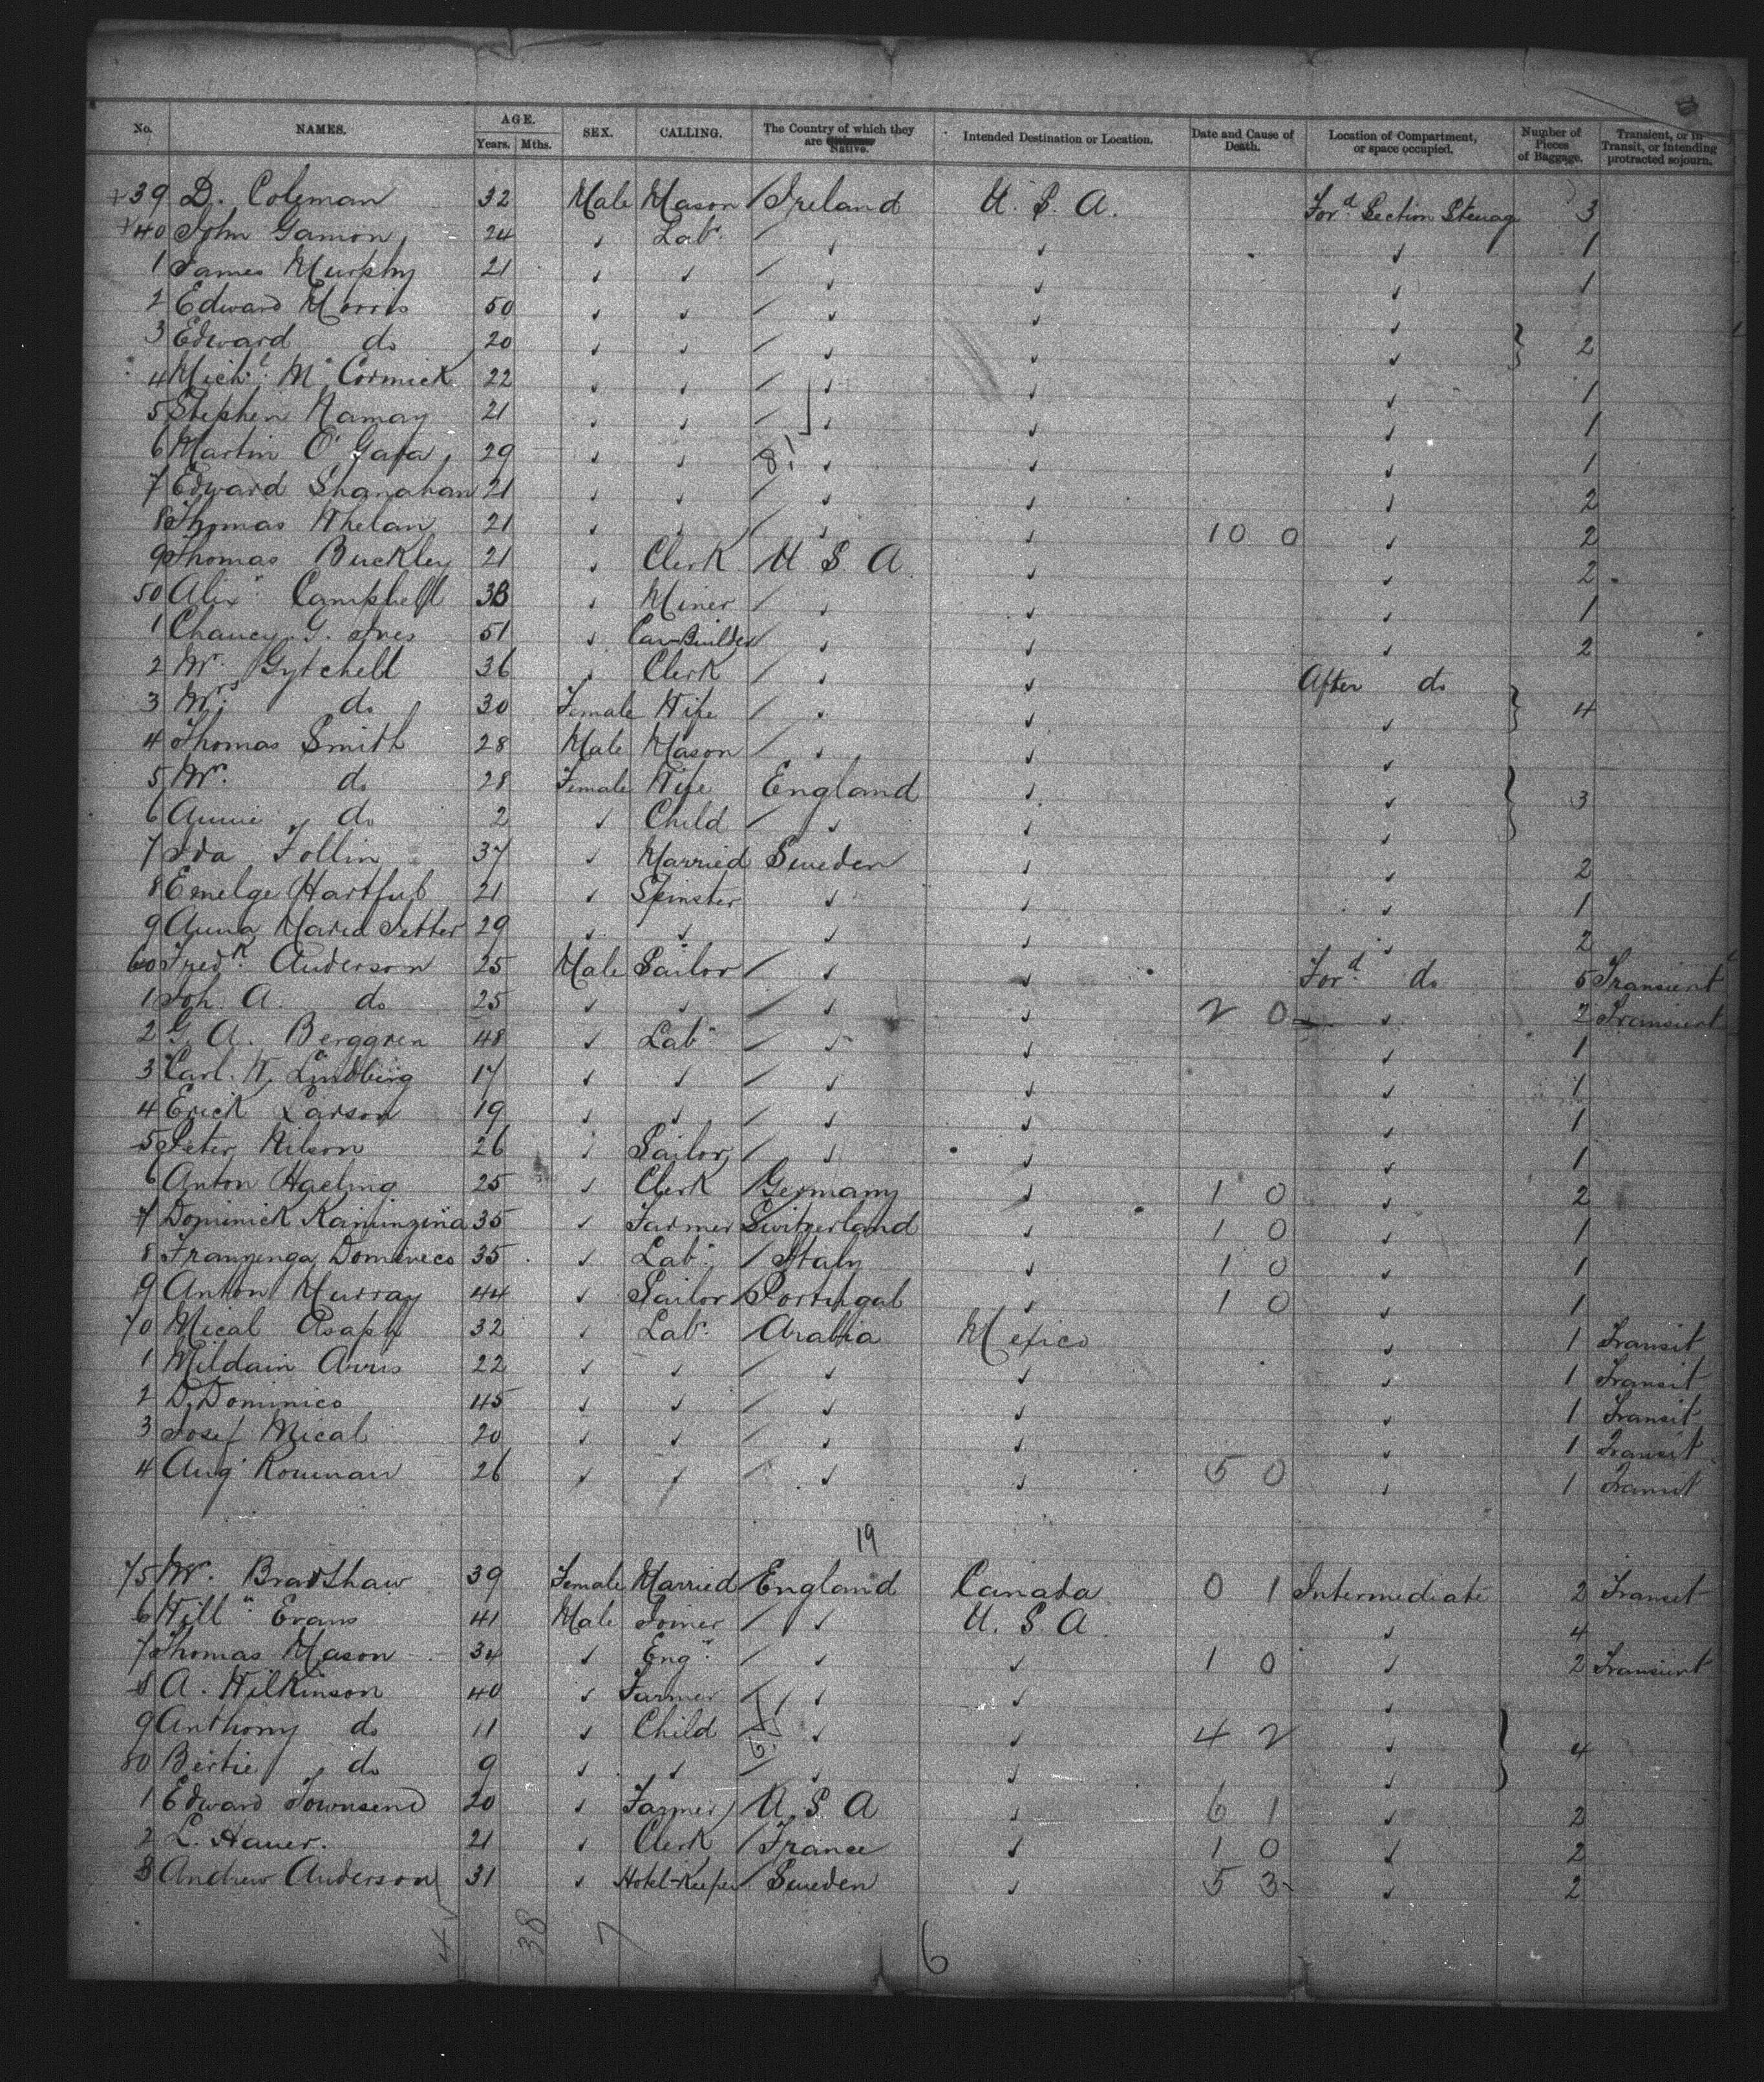 8
No. NAMES. AGE. Years. Mths. SEX. CALLING. The Country of which they are Native. Intended Destination or Location. Date and Cause of Death. Location of Compartment, or space occupied. Number of Pieces of Baggage. Transient, or in Transit, or intending protracted sojourn.
39 D. Coleman 32 Male Mason / Ireland U. S. A. For^d Section Steerag 3
40 John Gamon 24 ✓ Lab^r / ✓ ✓ ✓ 1
1 James Murphy 21 ✓ ✓ / ✓ ✓ ✓ 1
2 Edward Morris 50 ✓ ✓ / ✓ ✓ ✓
3 Edward do 20 ✓ ✓ / ✓ ✓ ✓ } 2
4 Mich^l Mc Cormick 22 ✓ ✓ / ✓ ✓ ✓ 1
5 Stephen Namay 21 ✓ ✓ / ✓ ✓ ✓ 1
6 Martin O'Gara 29 ✓ ✓ 8! ✓ ✓ ✓ 1
7 Edward Shanahan 21 ✓ ✓ / ✓ ✓ ✓ 2
8 Thomas Whelan 21 ✓ ✓ / ✓ ✓ 10 0 ✓ 2
9 Thomas Buckley 21 ✓ Clerk / U S A ✓ ✓ 2
50 Alex^r Campbell 33 ✓ Miner / ✓ ✓ ✓ 1
1 Chaucy G. 51 ✓ Car-Builder / ✓ ✓ ✓ 2
2 Mr. Gytchell 36 ✓ Clerk / ✓ ✓ After do
3 Mrs. do 30 Female Wife / ✓ ✓ ✓ } 4
4 Thomas Smith 28 Male Mason / ✓ ✓ ✓
5 Mrs. do 28 Female Wife England ✓ ✓ } 3
6 Annie do 2 ✓ Child / ✓ ✓ ✓
7 Ida Follin 37 ✓ Married Sweden ✓ ✓ 2
8 Emelge Hartfub 21 ✓ Spinster ✓ ✓ ✓ 1
9 Anna Maria Setter 29 ✓ ✓ ✓ ✓ ✓ 2
60 Fred^k Anderson 25 Male Sailor / ✓ ✓ For^d do 5 Transient
1 Joh. A. do 25 ✓ ✓ / ✓ ✓ 2 0 ✓ 2 Transient
2 G. A. Berggren 48 ✓ Lab^r / ✓ ✓ ✓ 1
3 Carl. W. Lindberg 17 ✓ ✓ / ✓ ✓ ✓ 1
4 Erick Larson 19 ✓ ✓ / ✓ ✓ ✓ 1
5 Peter Nilson 26 ✓ Sailor / ✓ ✓ ✓ 1
6 Anton Haeling 25 ✓ Clerk / Germany ✓ 1 0 ✓ 2
7 Dominick Kaminzina 35 ✓ Farmer Switzerland ✓ 1 0 ✓ 1
8 Franzenga Domineco 35 ✓ Lab^r / Italy ✓ 1 0 ✓ 1
9 Anton Murray 44 ✓ Sailor / Portugal ✓ 1 0 ✓ 1
70 Mical Asaph 32 ✓ Lab^r / Arabia Mexico ✓ 1 Transit
1 Mildain Arris 22 ✓ ✓ / ✓ ✓ ✓ 1 Transit
2 D. Dominico 45 ✓ ✓ / ✓ ✓ ✓ 1 Transit
3 Josef Mical 20 ✓ ✓ / ✓ ✓ ✓ 1 Transit
4 Aug Rouman 26 ✓ ✓ / ✓ ✓ 5 0 ✓ 1 Transit
19
75 Mrs. Bradshaw 39 Female Married / England Canada 0 1 Intermediate 2 Transit
6 Will^m Evans 41 Male Joiner / ✓ U. S. A. ✓ 4
7 Thomas Mason 34 ✓ Eng^r / ✓ ✓ 1 0 ✓ 2 Transient
8 A. Wilkinson 40 ✓ Farmer / ✓ ✓ ✓
9 Anthony do 11 ✓ Child ✓ ✓ 4 2 ✓ } 4
80 Bertie do 9 ✓ ✓ / ✓ ✓ ✓
1 Edward Townsend 20 ✓ Farmer / U. S. A ✓ 6 1 ✓ 2
2 L. Hauer. 21 ✓ Clerk / France ✓ 1 0 ✓ 2
3 Andrew Anderson 31 ✓ Hotel-Keeper / Sweden ✓ 5 3 ✓ 2
38 7 6